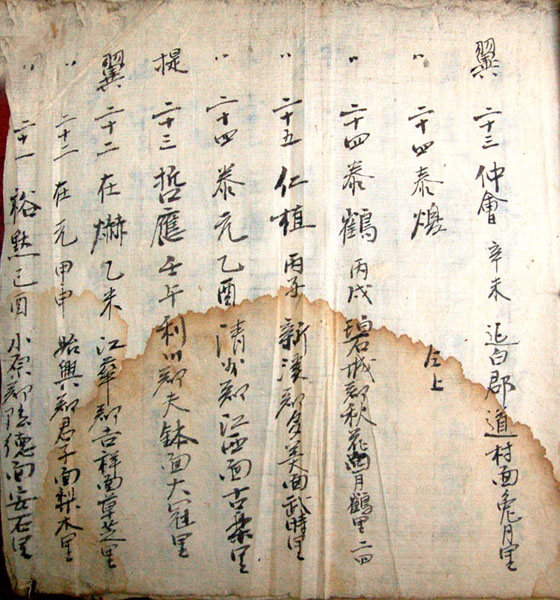 翼 二十三 仲會 辛未 延白郡道村面兎月里
〃 二十四 泰㷞 仝上
〃 二十四 泰鶴 丙戌 碧城郡秋花面月鶴里二四
〃 二十五 仁植 丙子 新溪郡多美面武時里
〃 二十四 泰元 乙酉 清州郡江西面古樂里
提 二十三 哲應 壬午 利川郡夫鉢面大冠里
翼 二十二 在爀 乙未 江華郡吉祥面草芝里
〃 二十二 在元 甲申 始興郡君子面 木里
〃 二十一 裕 己酉 郡 德面安石里